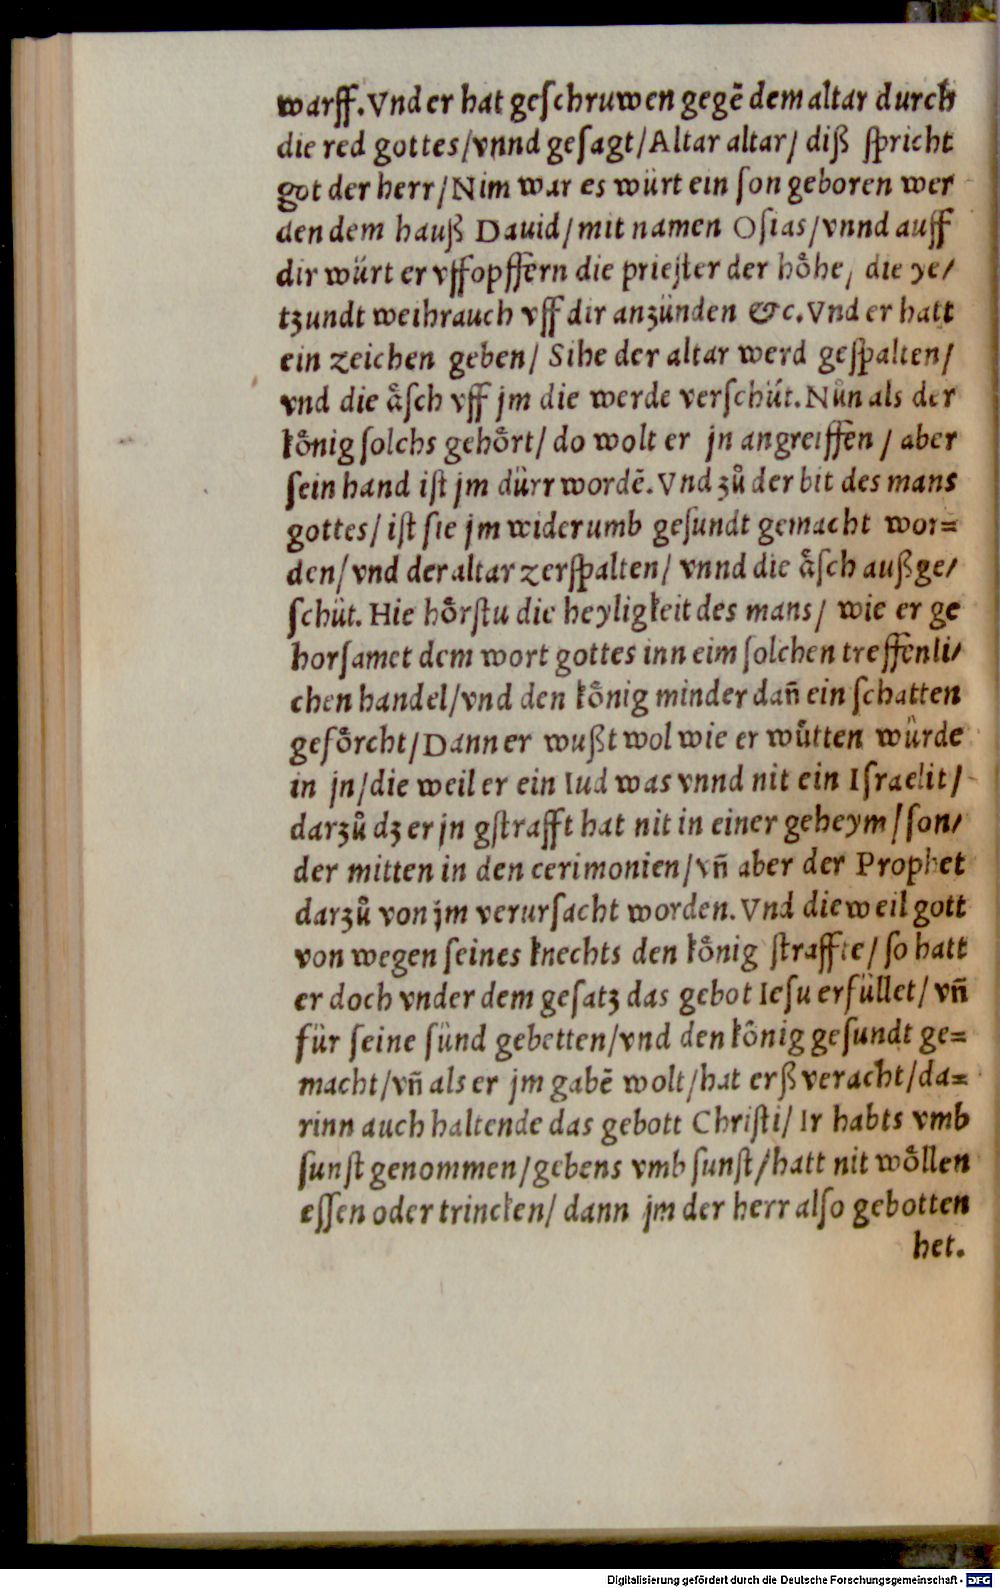 warff. Vnd er hat geschruwen gegē dem altar durch
die red gottes/vnnd gesagt/Altar altar/ diß spricht
got der herr/Nim war es würt ein son geboren wer
den dem hauß Dauid/mit namen Osias/vnnd auff
dir würt er vffopffern die priester der hoͤhe/ die ye/
tzundt weihrauch vff dir anzünden &c. Vnd er hatt
ein zeichen geben/ Sihe der altar werd gespalten/
vnd die aͤsch vff jm die werde verschüt. Nůn als der
koͤnig solchs gehoͤrt/ do wolt er jn angreiffen / aber
sein hand ist jm dürr wordē. Vnd zů der bit des mans
gottes/ ist sie jm widerumb gesundt gemacht wor=
den/vnd der altar zerspalten/ vnnd die aͤsch außge/
schüt. Hie hoͤrstu die heyligkeit des mans/ wie er ge
horsamet dem wort gottes inn eim solchen treffenli/
chen handel/vnd den koͤnig minder dañ ein schatten
gefoͤrcht/Dann er wußt wol wie er wuͤtten wuͤrde
in jn/die weil er ein Iud was vnnd nit ein Israelit/
darzů dz er jn gstrafft hat nit in einer geheym/son/
der mitten in den cerimonien/vñ aber der Prophet
darzů von jm verursacht worden. Vnd die weil gott
von wegen seines knechts den koͤnig straffte/ so hatt
er doch vnder dem gesatz das gebot Iesu erfüllet/ vñ
für seine sünd gebetten/vnd den koͤnig gesundt ge=
macht/vñ als er jm gabē wolt/hat erß veracht/da=
rinn auch haltende das gebott Christi/ Ir habts vmb
sunst genommen/gebens vmb sunst/hatt nit woͤllen
essen oder trincken/ dann jm der herr also gebotten
het.
Digitalisierung gefördert durch die Deutsche Forschungsgemeinschaft - DFG